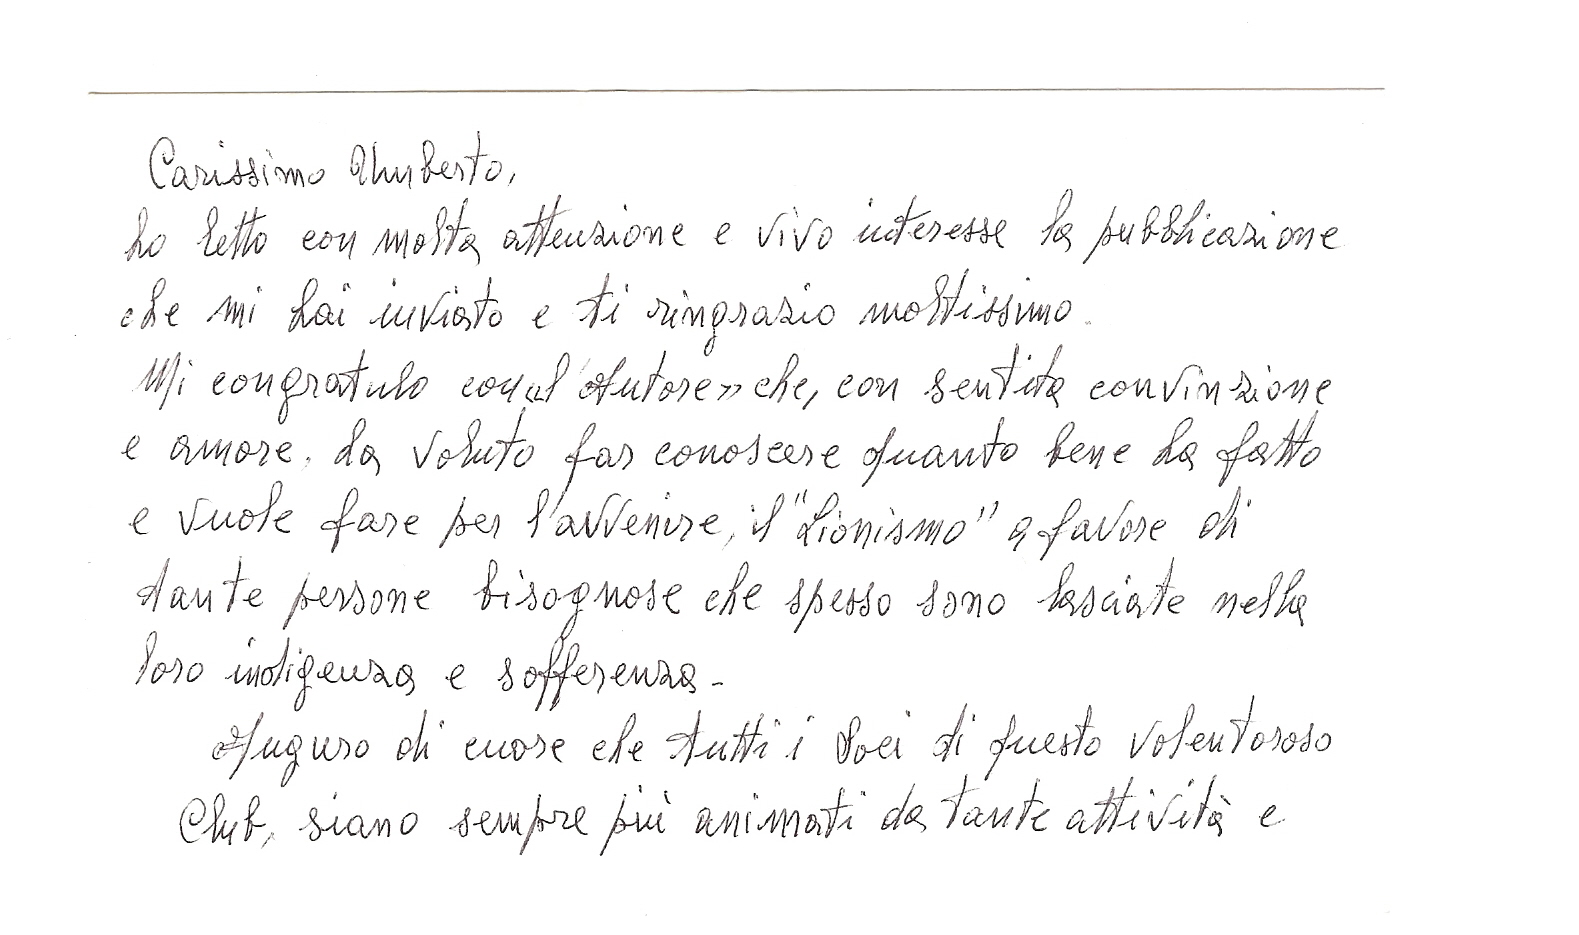 Carissimo Umberto,
ho letto con molta attenzione e vivo interesse la pubblicazione
che mi hai inviato e ti ringrazio moltissimo.
Mi congratulo con «l'Autore» che, con sentita convinzione
e amore, ha voluto far conoscere quanto bene ha fatto
e vuole fare per l'avvenire, il "Lionismo" a favore di
tante persone bisognose che spesso sono lasciate nella
loro indigenza e sofferenza -
Auguro di cuore che tutti i Soci di questo volentoroso
Club, siano sempre più animati da tante attività e